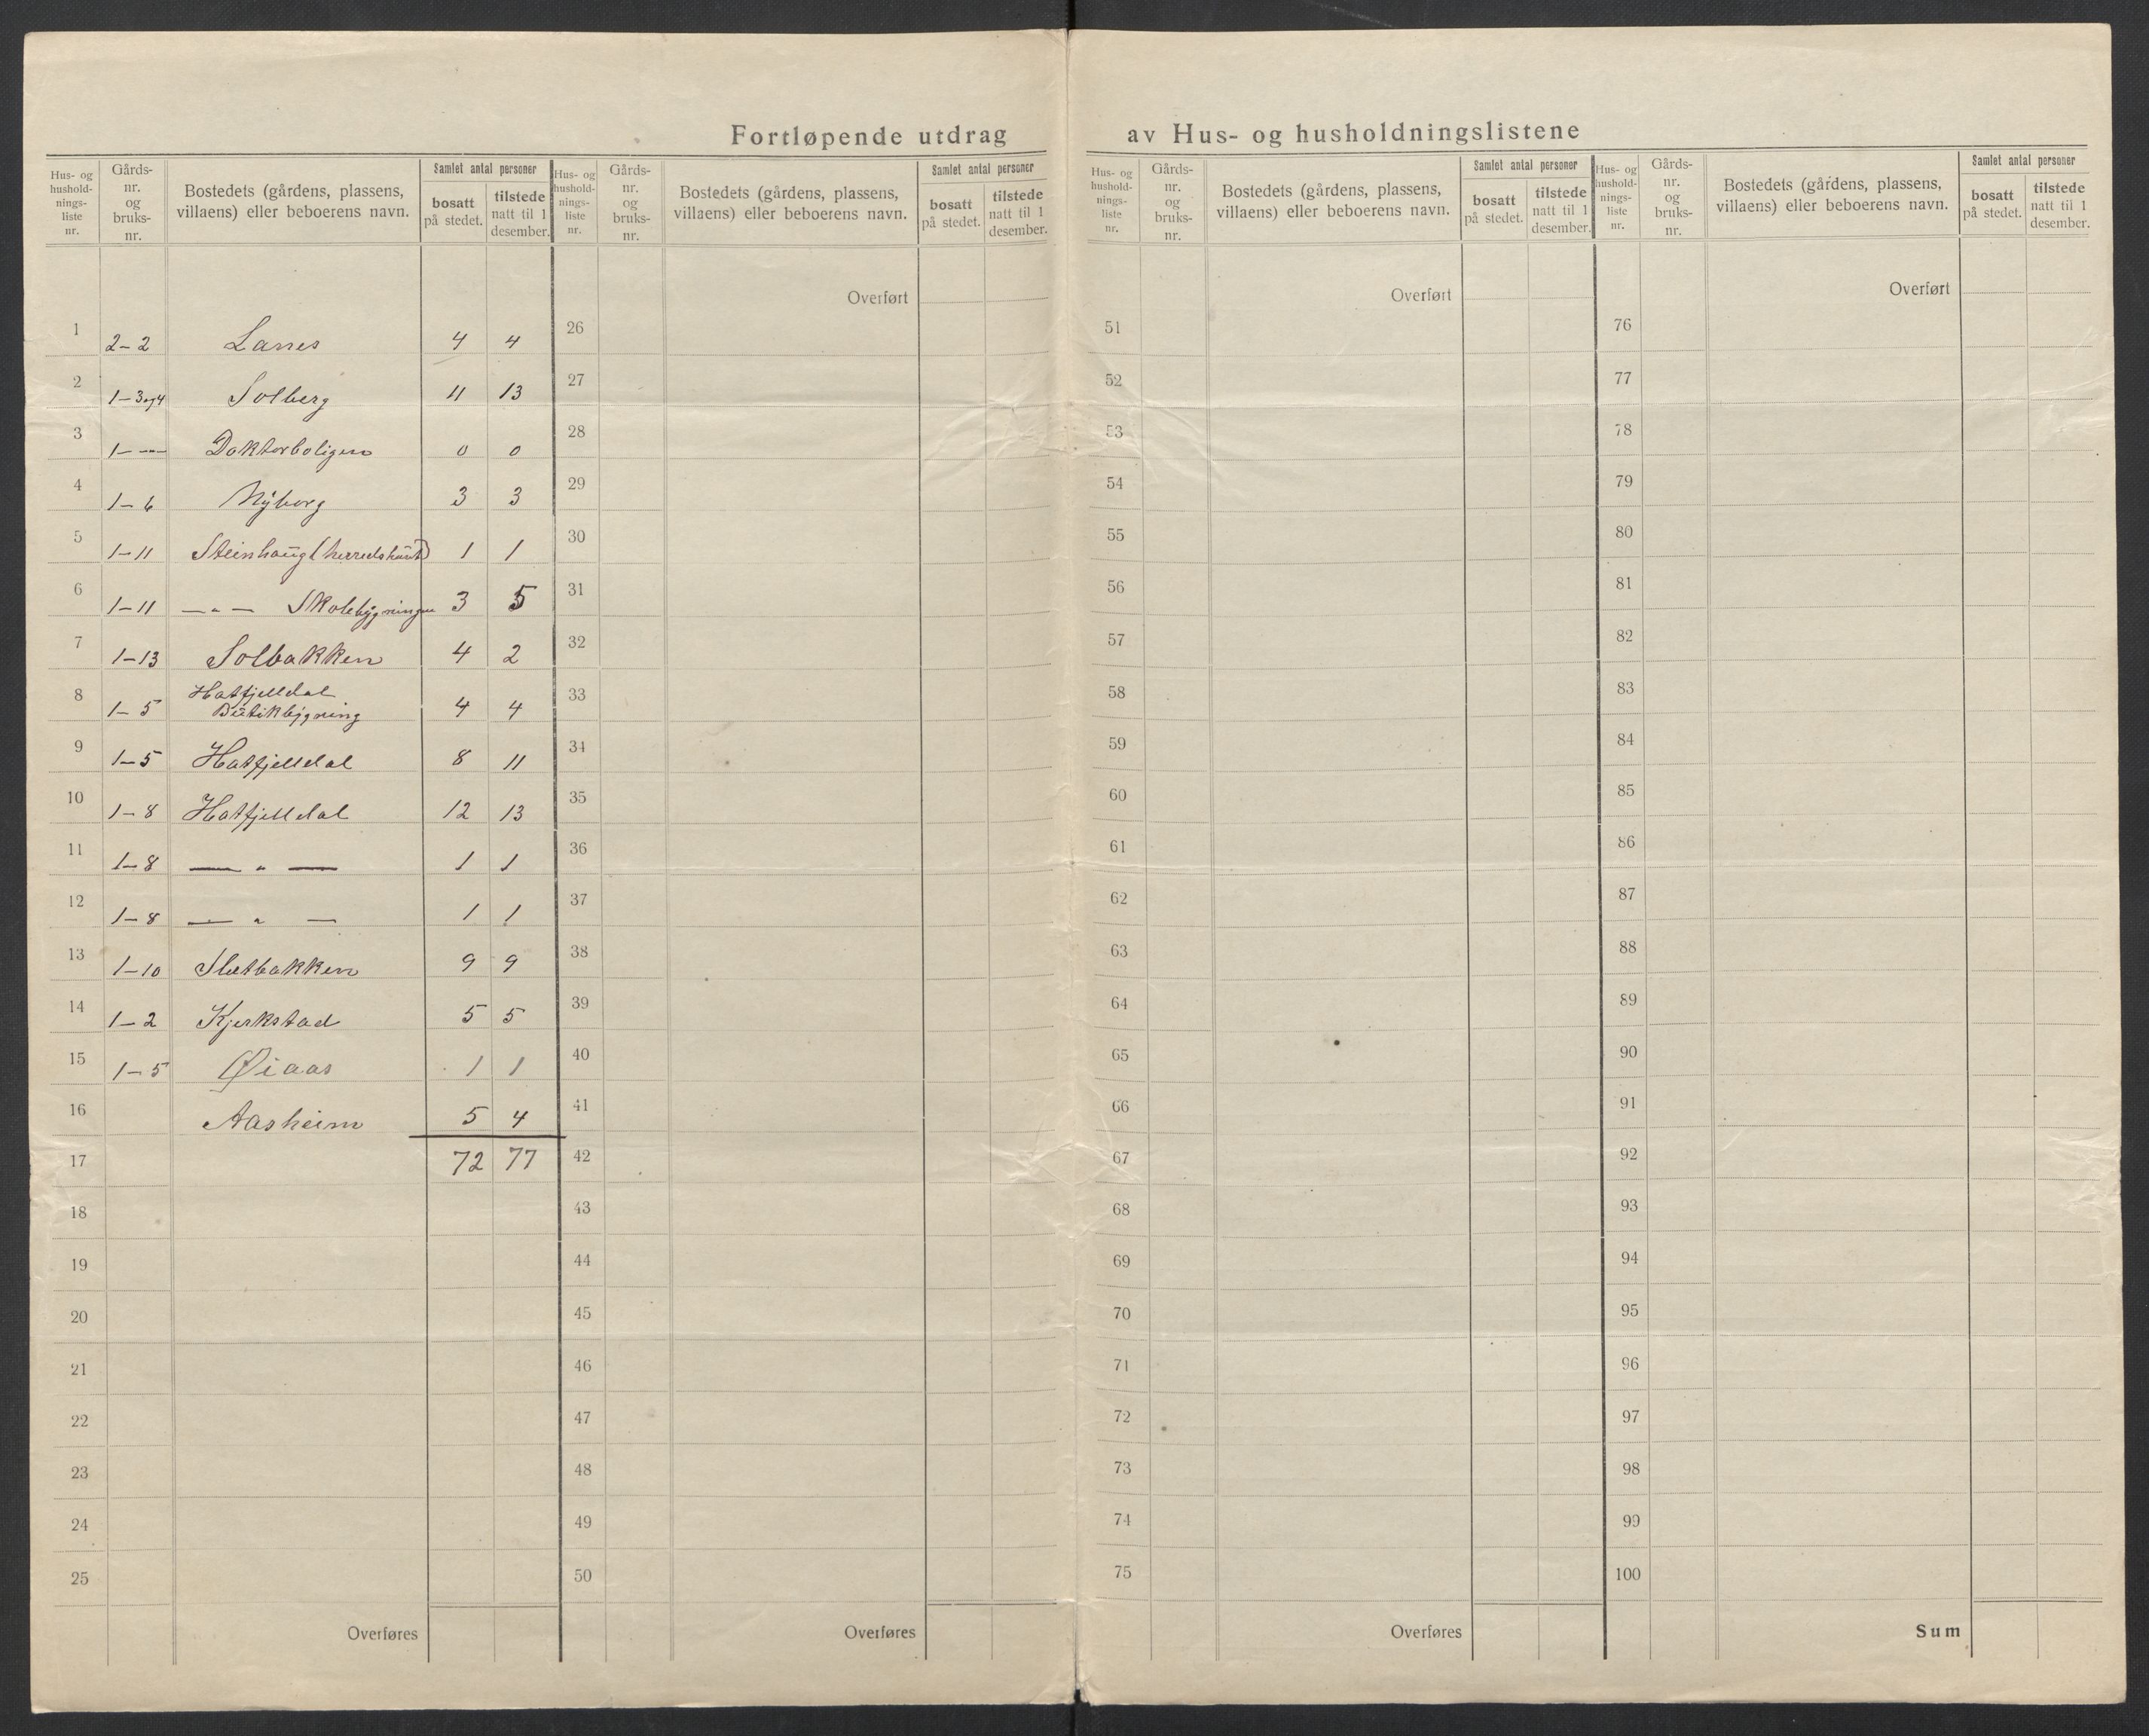 Fortløpende utdrag av Hus- og husholdningslistene
Hus- og hushold- nings- liste nr. Gårds- nr. og bruks- nr. Bostedets (gårdens, plassens, villaens) eller beboerens navn. Samlet antal personer bosatt på stedet. tilstede natt til 1 desember.
1 2-2 Lanes 4 4
2 1-3og4 Solberg 11 13
3 1- -- Doktorboligen 0 0
4 1-6 Nyborg 3 3
5 1-11 Steinhaug (herredshuset) 1 1
6 1-11 —"— Skolebygningen 3 5
7 1-13 Solbakken 4 2
8 1-5 Hatfjelldal
Butikbygning 4 4
9 1-5 Hatfjelldal 8 11
10 1-8 Hatfjelldal 12 13
11 1-8 — " — 1 1
12 1-8 — " — 1 1
13 1-10 Sletbakken 9 9
14 1-2 Kjerkstad 5 5
15 1-5 Øiaas 1 1
16 Aasheim 5 4
17 72 77
18
19
20
21
22
23
24
25
Overføres
Hus- og hushold- nings- liste nr. Gårds- nr. og bruks- nr. Bostedets (gårdens, plassens, villaens) eller beboerens navn. Samlet antal personer bosatt på stedet. tilstede natt til 1 desember.
Overført
26
27
28
29
30
31
32
33
34
35
36
37
38
39
40
41
42
43
44
45
46
47
48
49
50
Overføres
Hus- og hushold- nings- liste nr. Gårds- nr. og bruks- nr. Bostedets (gårdens, plassens, villaens) eller beboerens navn. Samlet antal personer bosatt på stedet. tilstede natt til 1 desember.
Overført
51
52
53
54
55
56
57
58
59
60
61
62
63
64
65
66
67
68
69
70
71
72
73
74
75
Overføres
Hus- og hushold- nings- liste nr. Gårds- nr. og bruks- nr. Bostedets (gårdens, plassens, villaens) eller beboerens navn. Samlet antal personer bosatt på stedet. tilstede natt til 1 desember.
Overført
76
77
78
79
80
81
82
83
84
85
86
87
88
89
90
91
92
93
94
95
96
97
98
99
100
Sum